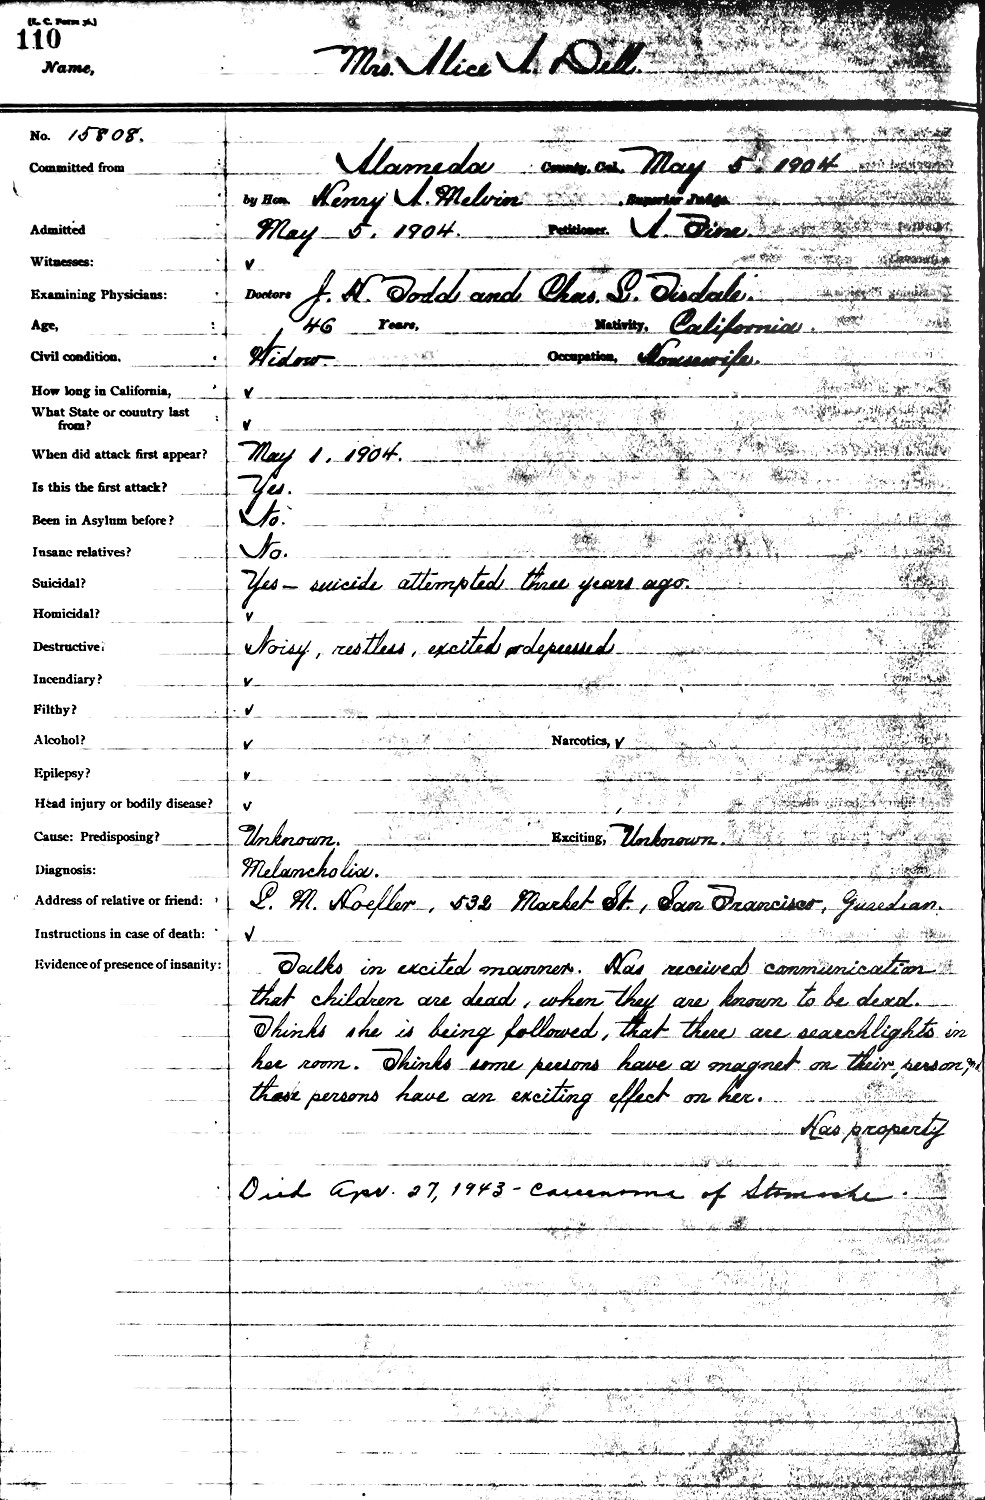 (L. C. Form 31.)
110
Name, Mrs. Alice A. Dell.
No. 15808.
Committed from Alameda County, Cal. May 5, 1904
by Hon. Henry A. Melvin Superior Judge.
Admitted May 5, 1904. Petitioner. A. Fine.
Witnesses: ✓
Examining Physicians: Doctors J. H. Todd and Chas. L. Tisdale.
Age, 46 Years, Nativity, California.
Civil condition, Widow Occupation, Housewife.
How long in California, ✓
What State or country last
from? ✓
When did attack first appear? May 1, 1904.
Is this the first attack? Yes.
Been in Asylum before? No.
Insane relatives? No.
Suicidal? Yes – suicide attempted three years ago.
Homicidal? ✓
Destructive: Noisy, restless, excited depressed
Incendiary? ✓
Filthy? ✓
Alcohol? ✓ Narcotics, ✓
Epilepsy? ✓
Head injury or bodily disease? ✓
Cause: Predisposing? Unknown. Exciting, Unknown.
Diagnosis: Melancholia.
Address of relative or friend: L. M. Hoefler, 532 Market St., San Francisco, Guardian.
Instructions in case of death: ✓
Evidence of presence of insanity: Talks in excited manner. Has received communication
that children are dead, when they are known to be dead.
Thinks she is being followed, that there are searchlights in
her room. Thinks some persons have a magnet on their person, and
those persons have an exciting effect on her.
Has property
Died Apr. 27, 1943 – Carcenoma of Stomache.